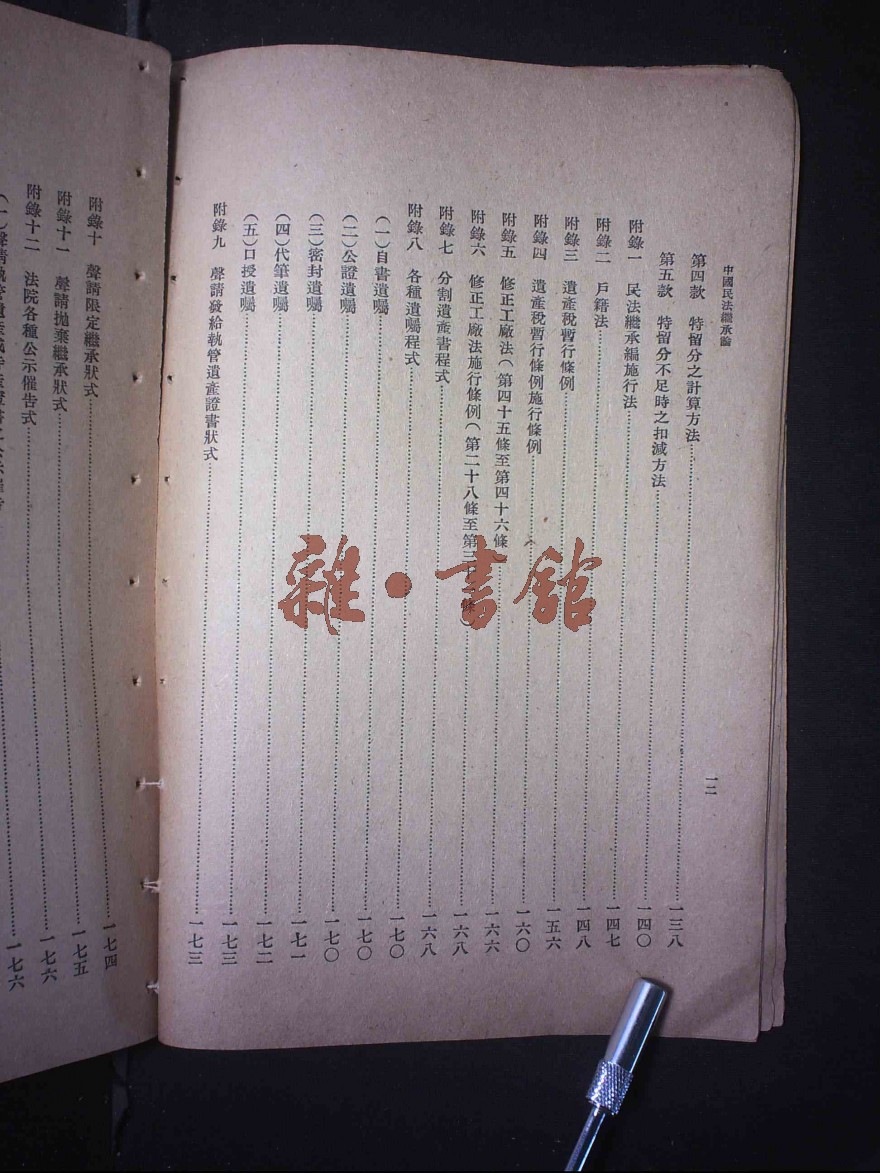 中國民法繼承論
一二
第四款　特留分之計算方法……一三八
第五款　特留分不足時之扣減方法……一四〇
附錄一　民法繼承編施行法……一四七
附錄二　戶籍法……一四八
附錄三　遺產稅暫行條例……一五六
附錄四　遺產稅暫行條例施行條例……一六〇
附錄五　修正工廠法(第四十五條至第四十六條……一六六
附錄六　修正工廠法施行條例(第二十八條至第三條……一六八
附錄七　分割遺產書程式……一六八
附錄八　各種遺囑程式……一七〇
(一)自書遺囑……一七〇
(二)公證遺囑……一七〇
(三)密封遺囑……一七一
(四)代筆遺囑……一七二
(五)口授遺囑……一七三
附錄九　聲請發給執管遺產證書狀式……一七三
附錄十　聲請限定繼承狀式……一七四
附錄十一　聲請拋棄繼承狀式……一七五
附錄十二　法院各種公示催告式……一七六
(一)聲請執管遺產……一七六
雜·書館